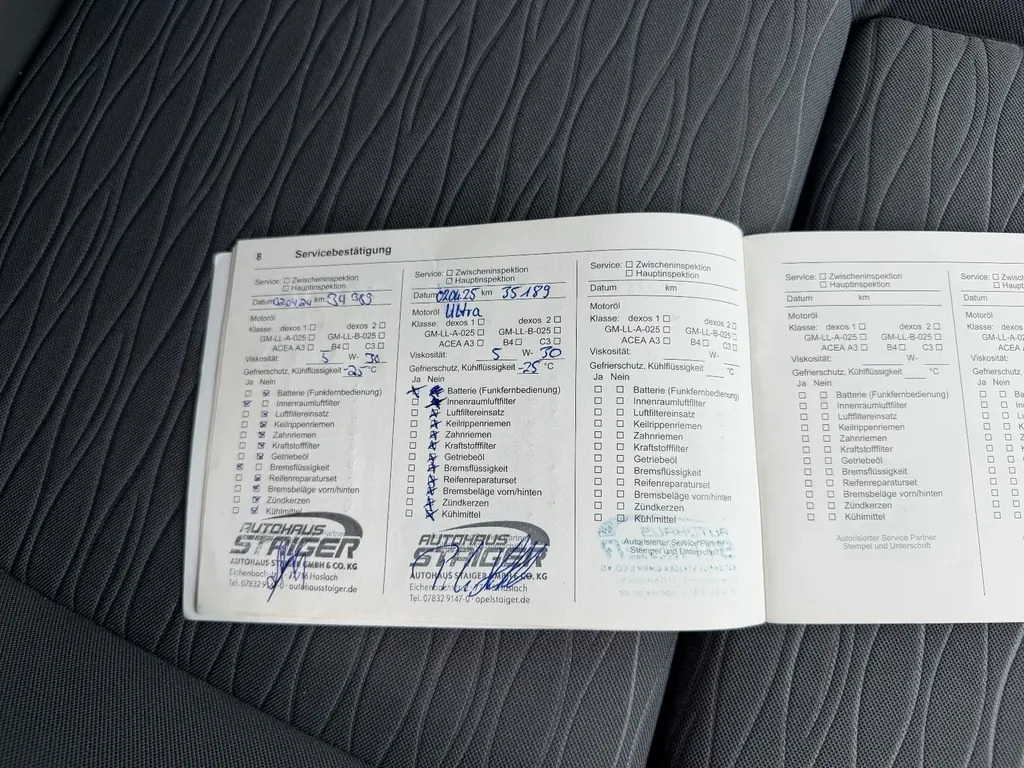 8 Servicebestätigung
Service: ☐ Zwischeninspektion
☐ Hauptinspektion
Datum 02.04.24 km 34 989
Motoröl
Klasse: dexos 1 ☐ dexos 2 ☐
GM-LL-A-025 ☐ GM-LL-B-025 ☐
ACEA A3 ☐ B4 ☐ C3 ☐
Viskosität: 5 W- 30
Gefrierschutz, Kühlflüssigkeit -25 °C
Ja Nein
Batterie (Funkfernbedienung)
Innenraumluftfilter
Luftfiltereinsatz
Keilrippenriemen
Zahnriemen
Kraftstofffilter
Getriebeöl
Bremsflüssigkeit
Reifenreparaturset
Bremsbeläge vorn/hinten
Zündkerzen
Kühlmittel
AUTOHAUS
STAIGER
AUTOHAUS STAIGER GMBH & CO. KG
Haslach
autohausstaiger.de
Service: ☐ Zwischeninspektion
☐ Hauptinspektion
Datum 02.04.25 km 35189
Motoröl Ultra
Klasse: dexos 1 ☐ dexos 2 ☐
GM-LL-A-025 ☐ GM-LL-B-025 ☐
ACEA A3 ☐ B4 ☐ C3 ☐
Viskosität: 5 W- 30
Gefrierschutz, Kühlflüssigkeit -25 °C
Ja Nein
Batterie (Funkfernbedienung)
Innenraumluftfilter
Luftfiltereinsatz
Keilrippenriemen
Zahnriemen
Kraftstofffilter
Getriebeöl
Bremsflüssigkeit
Reifenreparaturset
Bremsbeläge vorn/hinten
Zündkerzen
Kühlmittel
AUTOHAUS
STAIGER
AUTOHAUS STAIGER GMBH & CO. KG
Haslach
Tel. 07832 9147-0 · opelstaiger.de
Service: ☐ Zwischeninspektion
☐ Hauptinspektion
Datum km
Motoröl
Klasse: dexos 1 ☐ dexos 2 ☐
GM-LL-A-025 ☐ GM-LL-B-025 ☐
ACEA A3 ☐ B4 ☐ C3 ☐
Viskosität: W-
Gefrierschutz, Kühlflüssigkeit °C
Ja Nein
☐ ☐ Batterie (Funkfernbedienung)
☐ ☐ Innenraumluftfilter
☐ ☐ Luftfiltereinsatz
☐ ☐ Keilrippenriemen
☐ ☐ Zahnriemen
☐ ☐ Kraftstofffilter
☐ ☐ Getriebeöl
☐ ☐ Bremsflüssigkeit
☐ ☐ Reifenreparaturset
☐ ☐ Bremsbeläge vorn/hinten
☐ ☐ Zündkerzen
☐ ☐ Kühlmittel
Autorisierter Service Partner
Stempel und Unterschrift
Service: ☐ Zwischeninspektion
☐ Hauptinspektion
Datum km
Motoröl
Klasse: dexos 1 ☐ dexos 2 ☐
GM-LL-A-025 ☐ GM-LL-B-025 ☐
ACEA A3 ☐ B4 ☐ C3 ☐
Viskosität: W-
Gefrierschutz, Kühlflüssigkeit °C
Ja Nein
☐ ☐ Batterie (Funkfernbedienung)
☐ ☐ Innenraumluftfilter
☐ ☐ Luftfiltereinsatz
☐ ☐ Keilrippenriemen
☐ ☐ Zahnriemen
☐ ☐ Kraftstofffilter
☐ ☐ Getriebeöl
☐ ☐ Bremsflüssigkeit
☐ ☐ Reifenreparaturset
☐ ☐ Bremsbeläge vorn/hinten
☐ ☐ Zündkerzen
☐ ☐ Kühlmittel
Autorisierter Service Partner
Stempel und Unterschrift
Service: ☐
Datum
Motoröl
Klasse: dexos
GM-LL-A-
ACEA
Viskosität:
Gefrierschutz,
Ja Nein